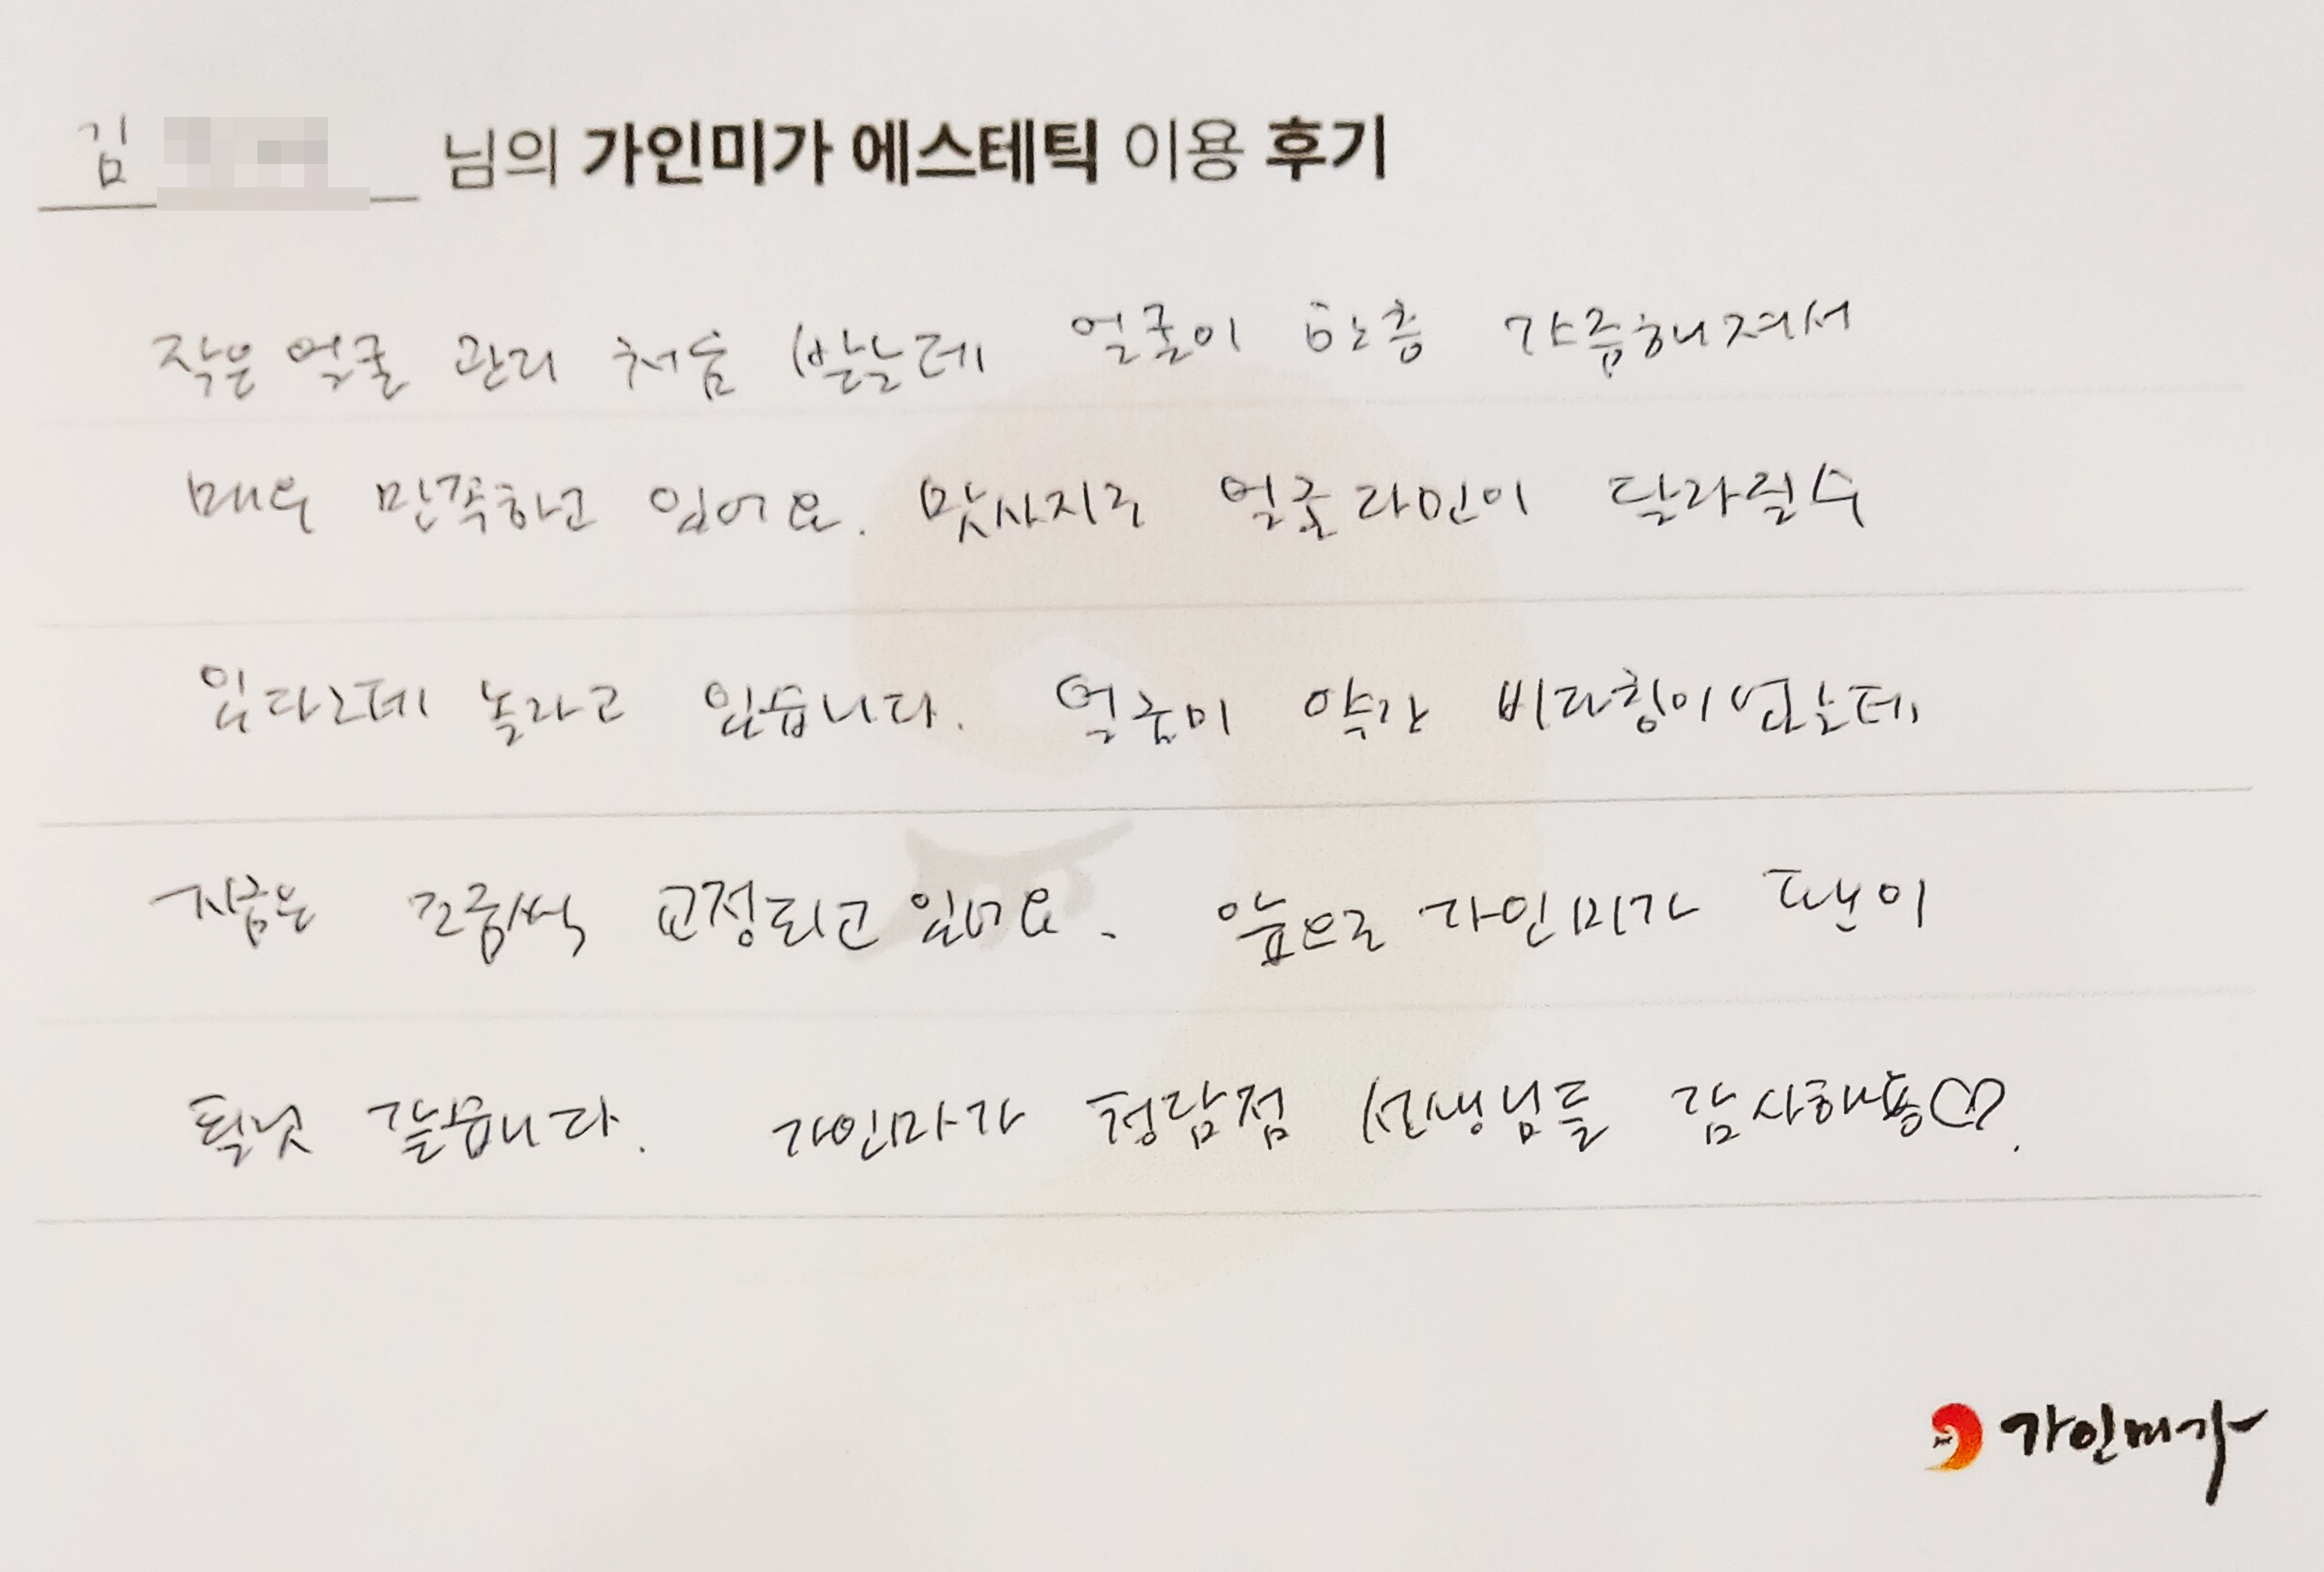 김 님의 가인미가 에스테틱 이용 후기
작은 얼굴 관리 처음 받는데 얼굴이 한층 갸름해져서
매우 만족하고 있어요. 맛사지로 얼굴라인이 달라질수
있다는데 놀라고 있습니다. 얼굴이 약간 비대칭이었는데
지금은 조금씩 교정되고 있어요. 앞으로 가인미가 팬이
될것 같습니다. 가인미가 청담점 선생님들 감사해용♡.
가인미가